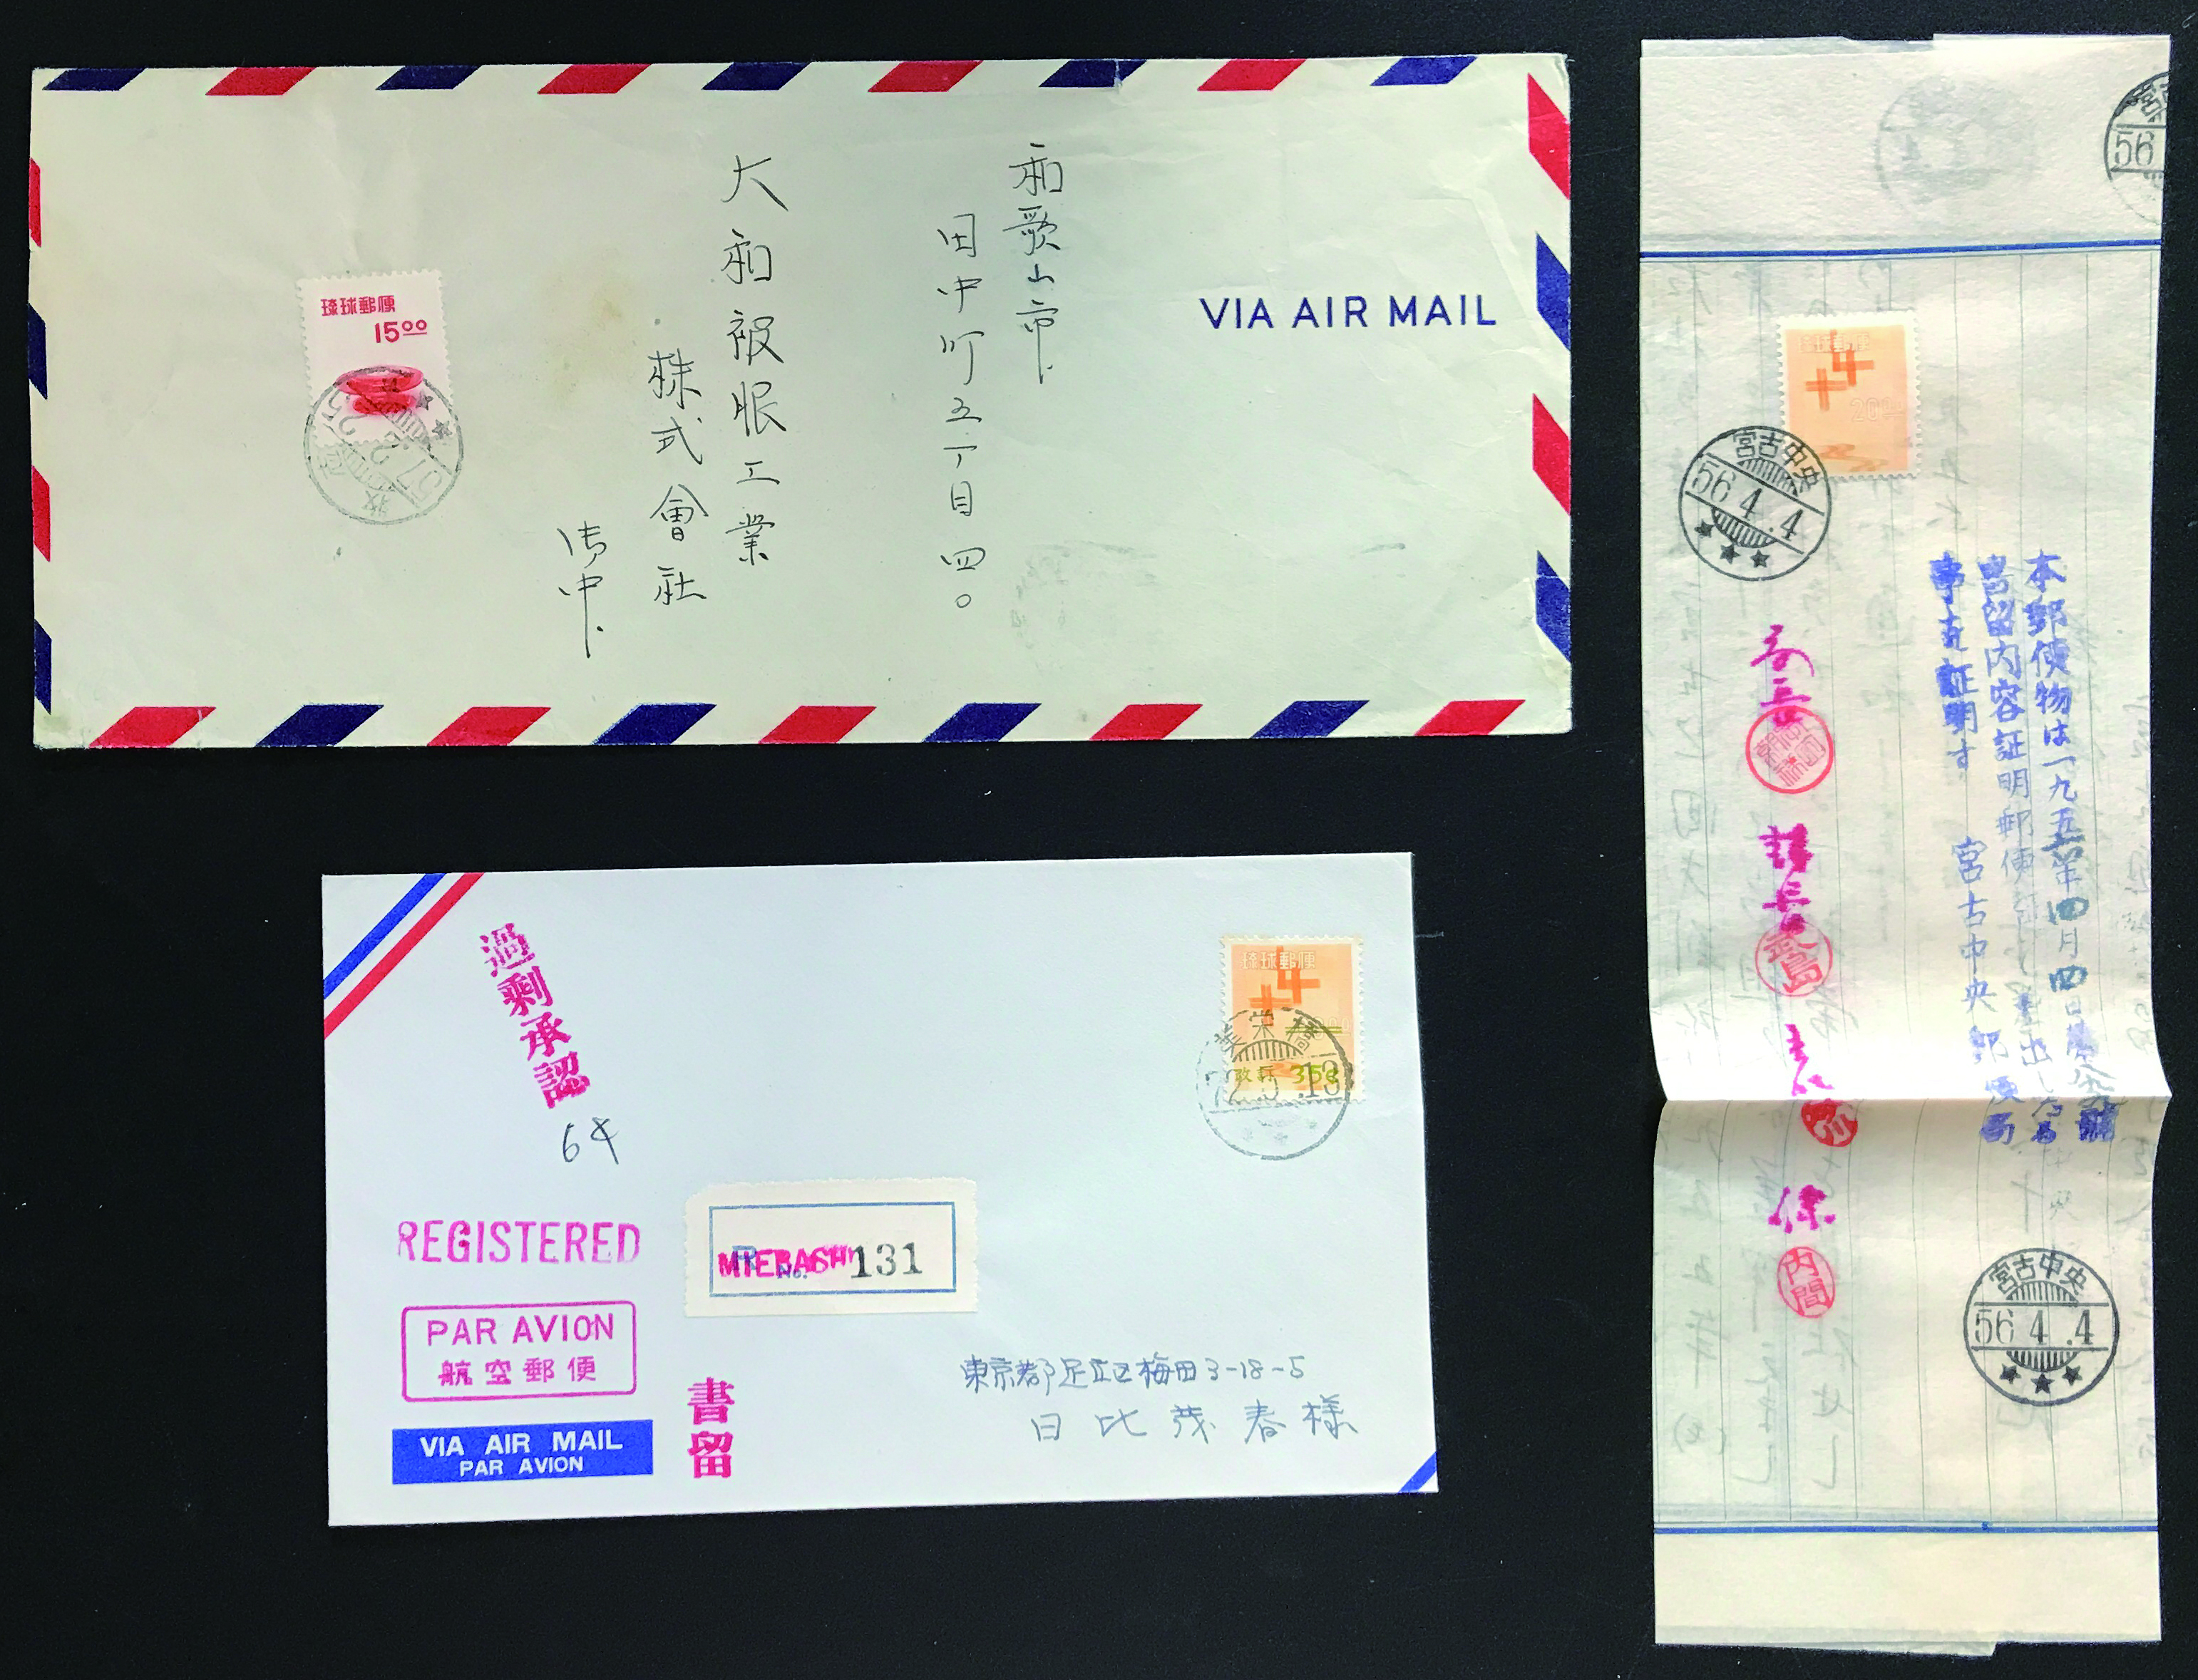 琉球郵便
15⁰⁰
57.2.25
和歌山市
田中町五丁目四〇
大和被服工業
株式會社
御中
VIA AIR MAIL
過剰承認
6¢
琉球郵便
改訂 35¢
栄橋
72.5.13
REGISTERED
MIEBASHI
R
No.
131
PAR AVION
航空郵便
VIA AIR MAIL
PAR AVION
書留
東京都足立区梅田3-18-5
日比茂春様
56
琉球郵便
20
宮古中央
56.4.4
本郵便物は一九五六年四月四日第
書留内容証明郵便
差出した
事を証明す
宮古中央郵便局
局長
課長
武島
主
川
係
内間
宮古中央
56.4.4